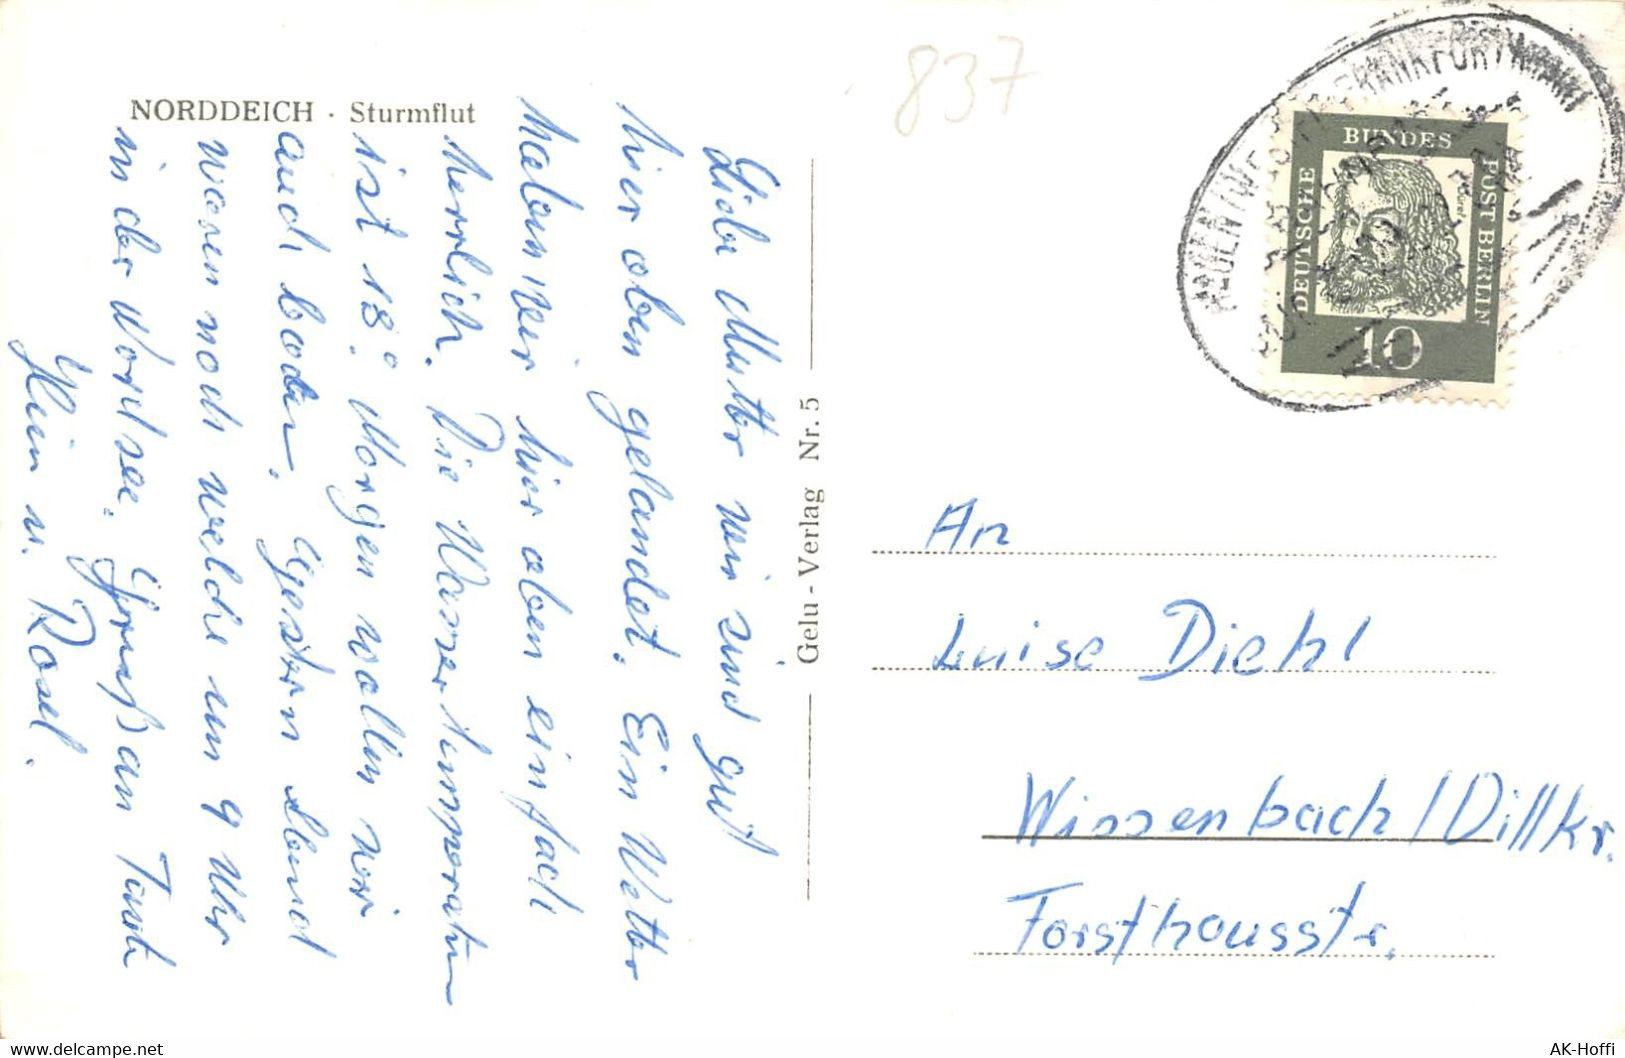 NORDDEICH · Sturmflut
Liebe Mutter wir sind gut
hier oben gelandet. Ein Wetter
haben wir hier oben einfach
herrlich. Die Wassertemperatur
ist 18°. Morgen wollen wir
auch baden. Gestern Abend
waren noch welche um 9 Uhr
in der Nordsee. Gruß an Tante
u. Rosel.
Gelu-Verlag Nr. 5
837
FRANKFURT (MAIN)
DEUTSCHE
BUNDES
POST BERLIN
10
An
Luise Diehl
Wissenbach/Dillkr.
Forsthausstr.
www.delcampe.net
AK-Hoffi